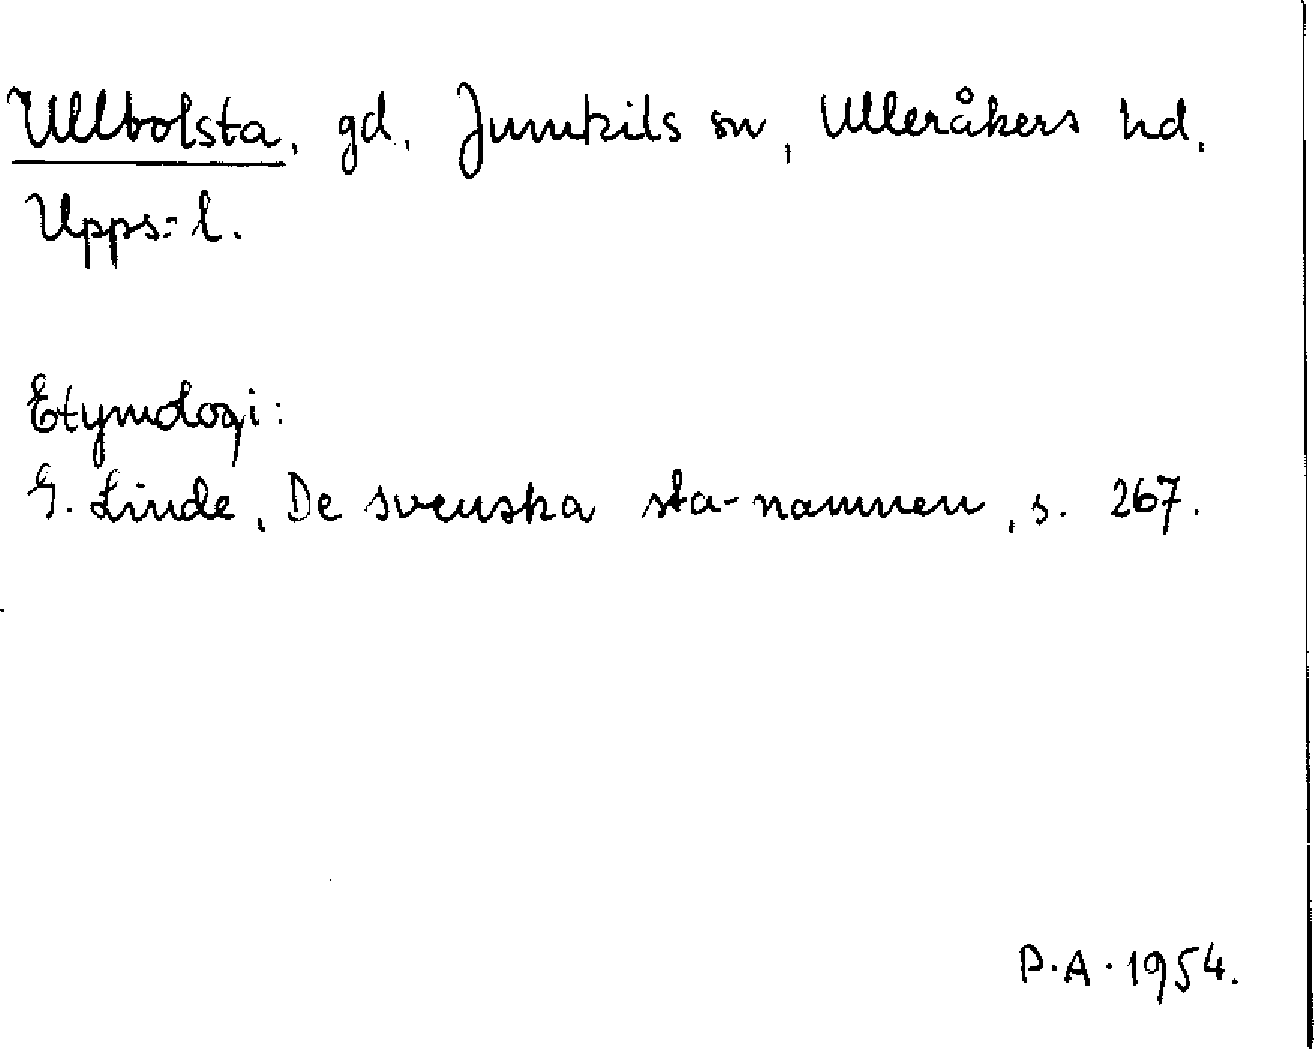 Ullbolsta, gd, Jumkils sn, Ulleråkers hd,
Upps=l.
Etymologi:
G. Linde, De svenska sta-namnen, s. 267.
P.A. 1954.